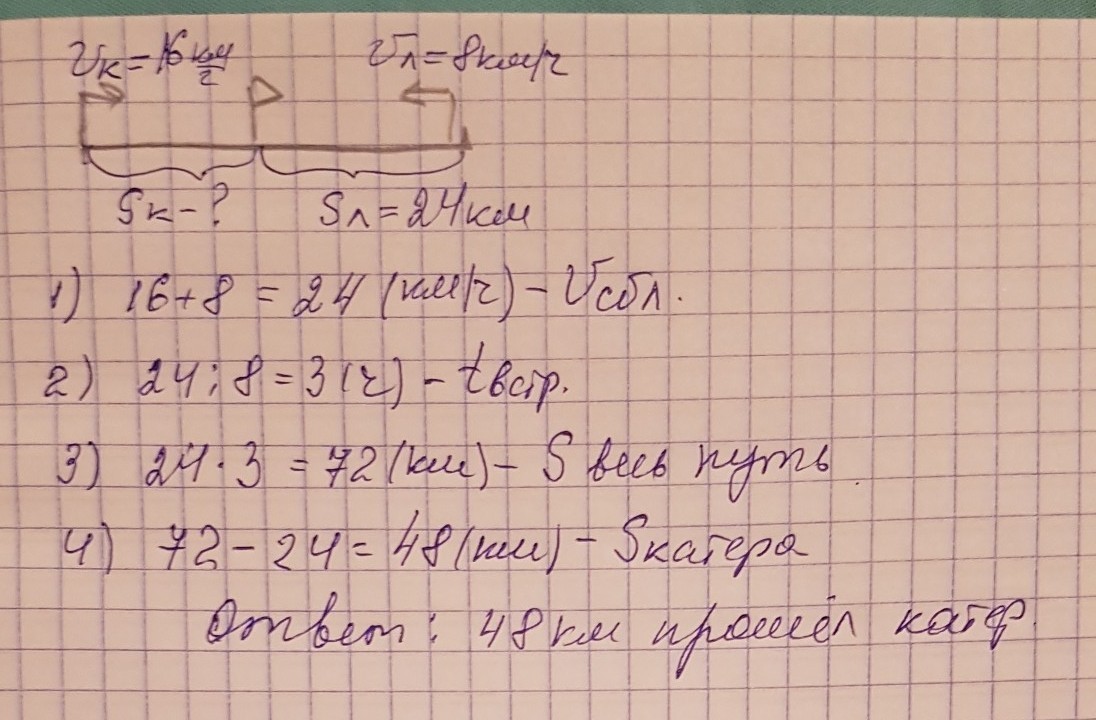 Vк=16 км/г Vл=8км/ч
Sк-? Sл=24км
1) 16+8 = 24 (км/ч) - Vсбл.
2) 24:8=3(ч) - tвстр.
3) 24·3 =72(км)- S весь путь
4) 72-24=48(км)- Sкатера
Ответ: 48км прошёл катер.